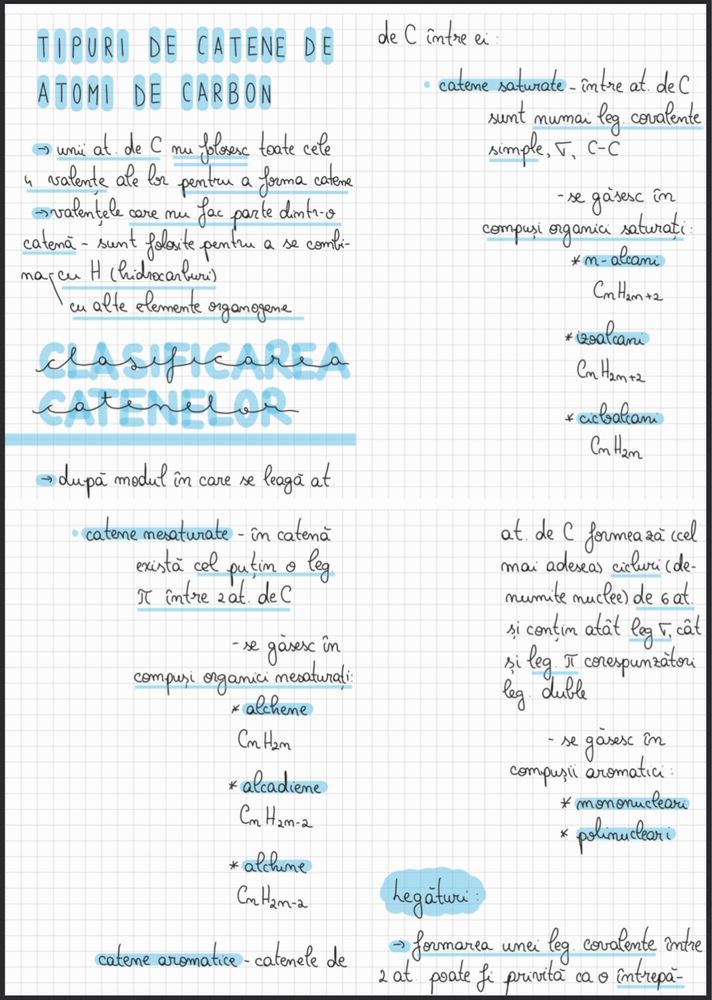 TIPURI DE CATENE DE
ATOMI DE CARBON
→ unii at. de C nu folosesc toate cele
4 valențe ale lor pentru a forma catene
→ valențele care nu fac parte dintr-o
catenă - sunt folosite pentru a se combi-
na cu H (hidrocarburi)
cu alte elemente organogene
CLASIFICAREA
clasificarea
CATENELOR
catenelor
→ după modul în care se leagă at
de C între ei:
• catene saturate - între at. de C
sunt numai leg. covalente
simple, σ, C-C
- se găsesc în
compuși organici saturați:
* n-alcani
CnH2n+2
* izoalcani
CnH2n+2
* cicloalcani
CnH2n
• catene nesaturate - în catenă
există cel puțin o leg
π între 2 at. de C
- se găsesc în
compuși organici nesaturați:
* alchene
CnH2n
* alcadiene
CnH2n-2
* alchine
CnH2n-2
catene aromatice - catenele de
at. de C formează (cel
mai adesea) cicluri (de-
numite nuclee) de 6 at.
și conțin atât leg σ, cât
și leg π corespunzători
leg. duble
- se găsesc în
compușii aromatici:
* mononucleari
* polinucleari
Legături:
→ formarea unei leg. covalente între
2 at. poate fi privită ca o întrepă-